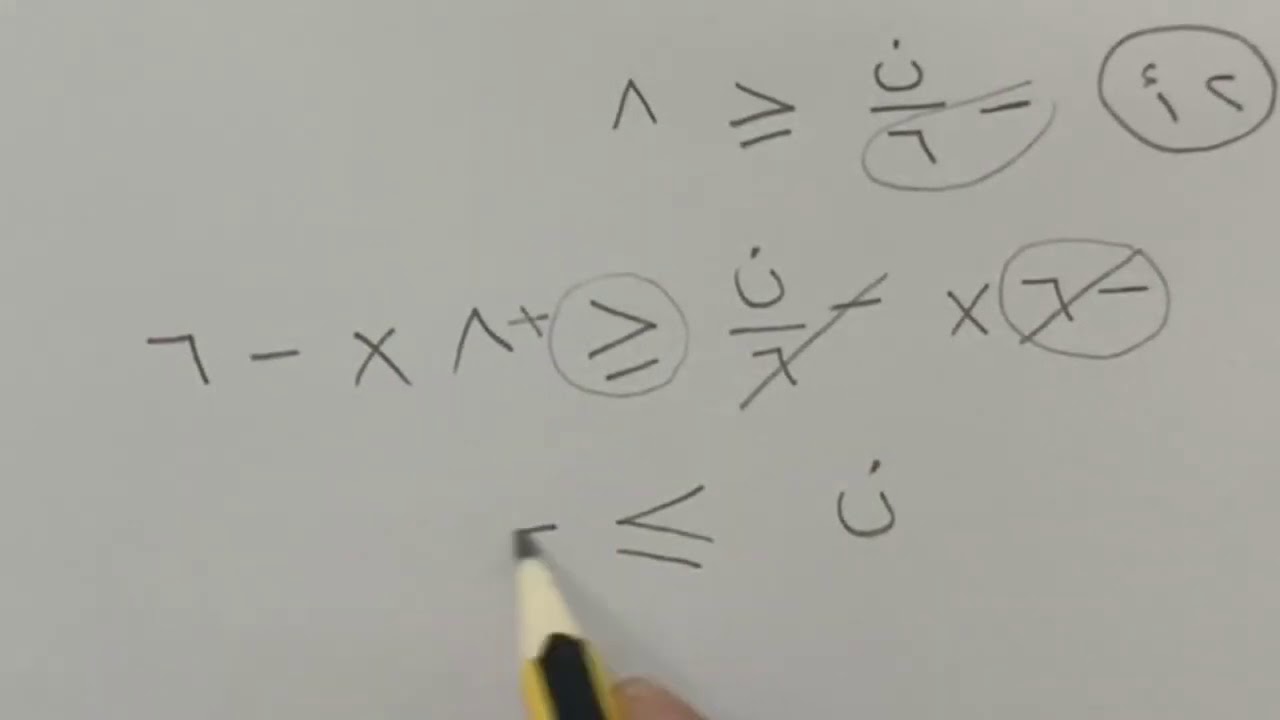 ٢أ − ن/٦ ≥ ٨
−٦ × − ن/٦ ≥ +٨ × −٦
ن ≤ −